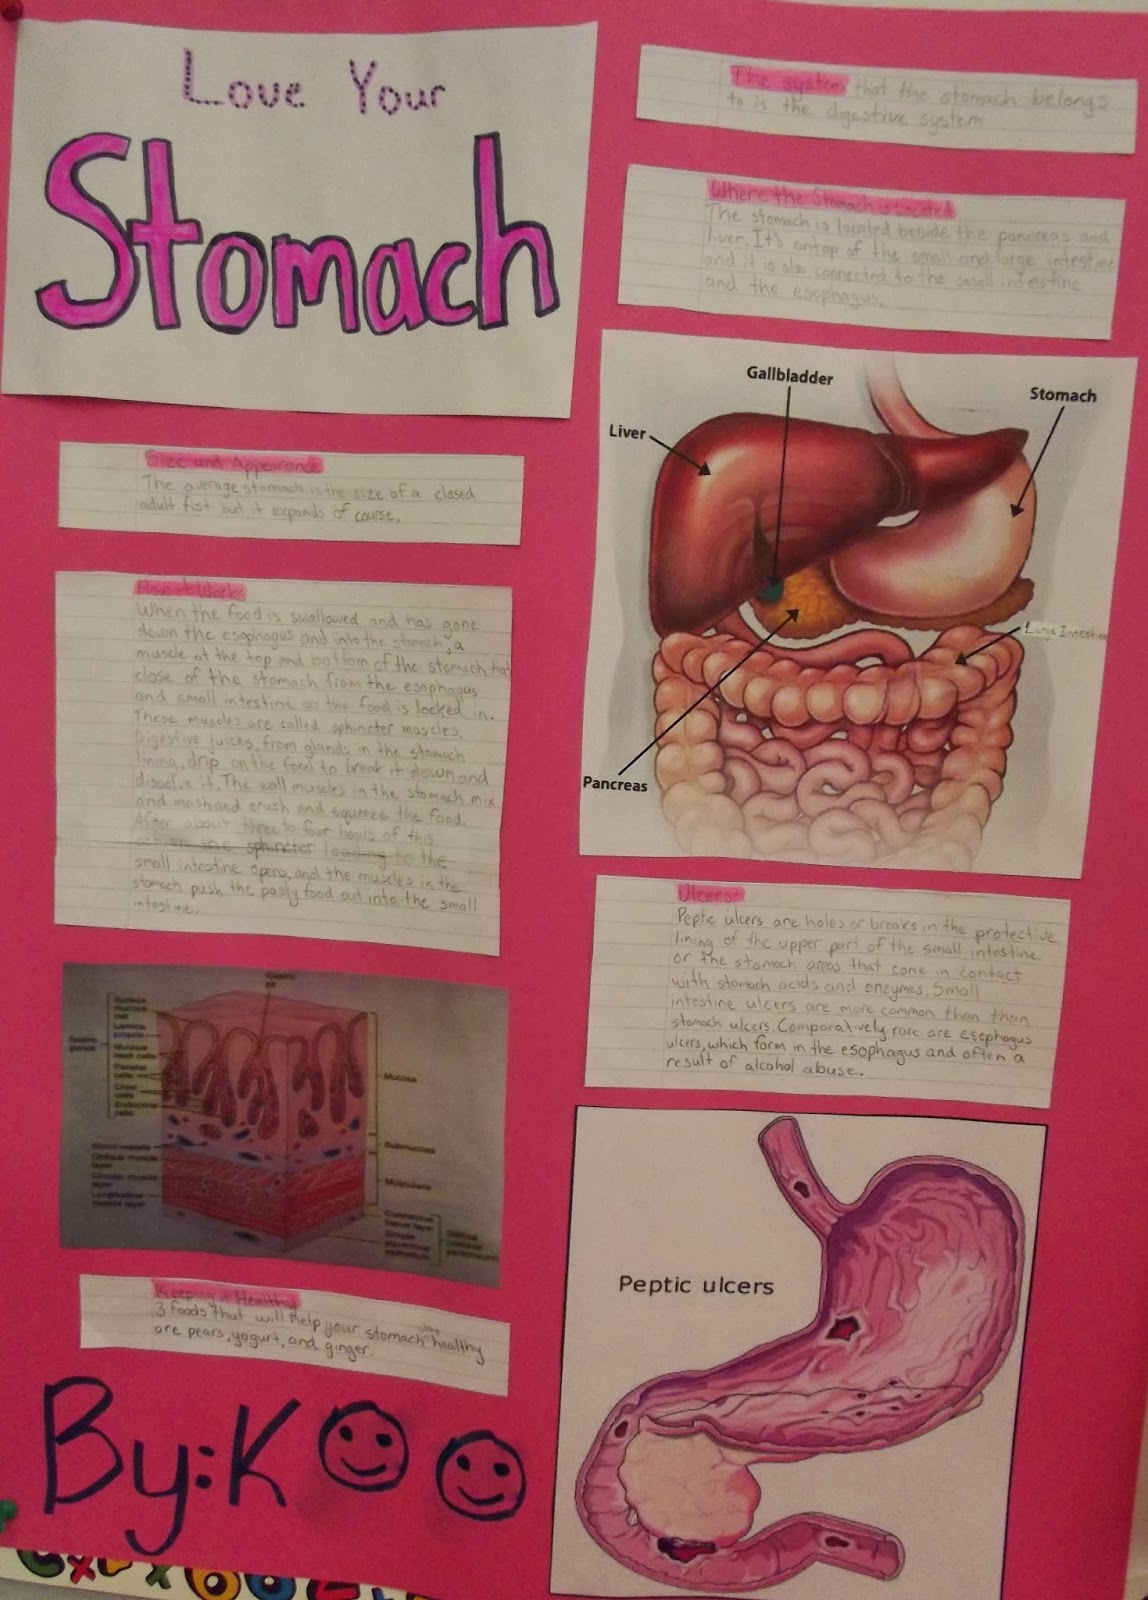 Love Your
Stomach
Size and Appearance
The average stomach is the size of a closed
adult fist but it expands of course.
How it Works
When the food is swallowed and has gone
down the esophagus and into the stomach, a
muscle at the top and bottom of the stomach that
close of the stomach from the esophagus
and small intestine so the food is locked in.
These muscles are called sphincter muscles.
Digestive juices, from glands in the stomach
lining, drip on the food to break it down and
dissolve it. The wall muscles in the stomach mix
and mash and crush and squeeze the food.
After about three to four hours of this
action the sphincter leading to the
small intestine opens, and the muscles in the
stomach push the pasty food out into the small
intestine.
Gastric
pit
Surface
mucous
cell
Lamina
propria
Gastric
glands
Mucous
neck cells
Parietal
cells
Chief
cells
Endocrine
cells
Mucosa
Blood vessels
Submucosa
Oblique muscle
layer
Circular muscle
layer
Muscularis
Longitudinal
muscle layer
Connective
tissue layer
Simple
squamous
epithelium
Keeping it Healthy
3 foods that will help your stomach healthy
are pears, yogurt, and ginger.
By: K
The system that the stomach belongs
to is the digestive system
Where the Stomach is Located
The stomach is located beside the pancreas and
liver. It's ontop of the small and large intestine
and it is also connected to the small intestine
and the esophagus.
Gallbladder
Stomach
Liver
Large Intestine
Pancreas
Ulcers
Peptic ulcers are holes or breaks in the protective
lining of the upper part of the small intestine
or the stomach areas that come in contact
with stomach acids and enzymes. Small
intestine ulcers are more common than than
stomach ulcers. Comparatively rare are esophagus
ulcers, which form in the esophagus and often a
result of alcohol abuse.
Peptic ulcers